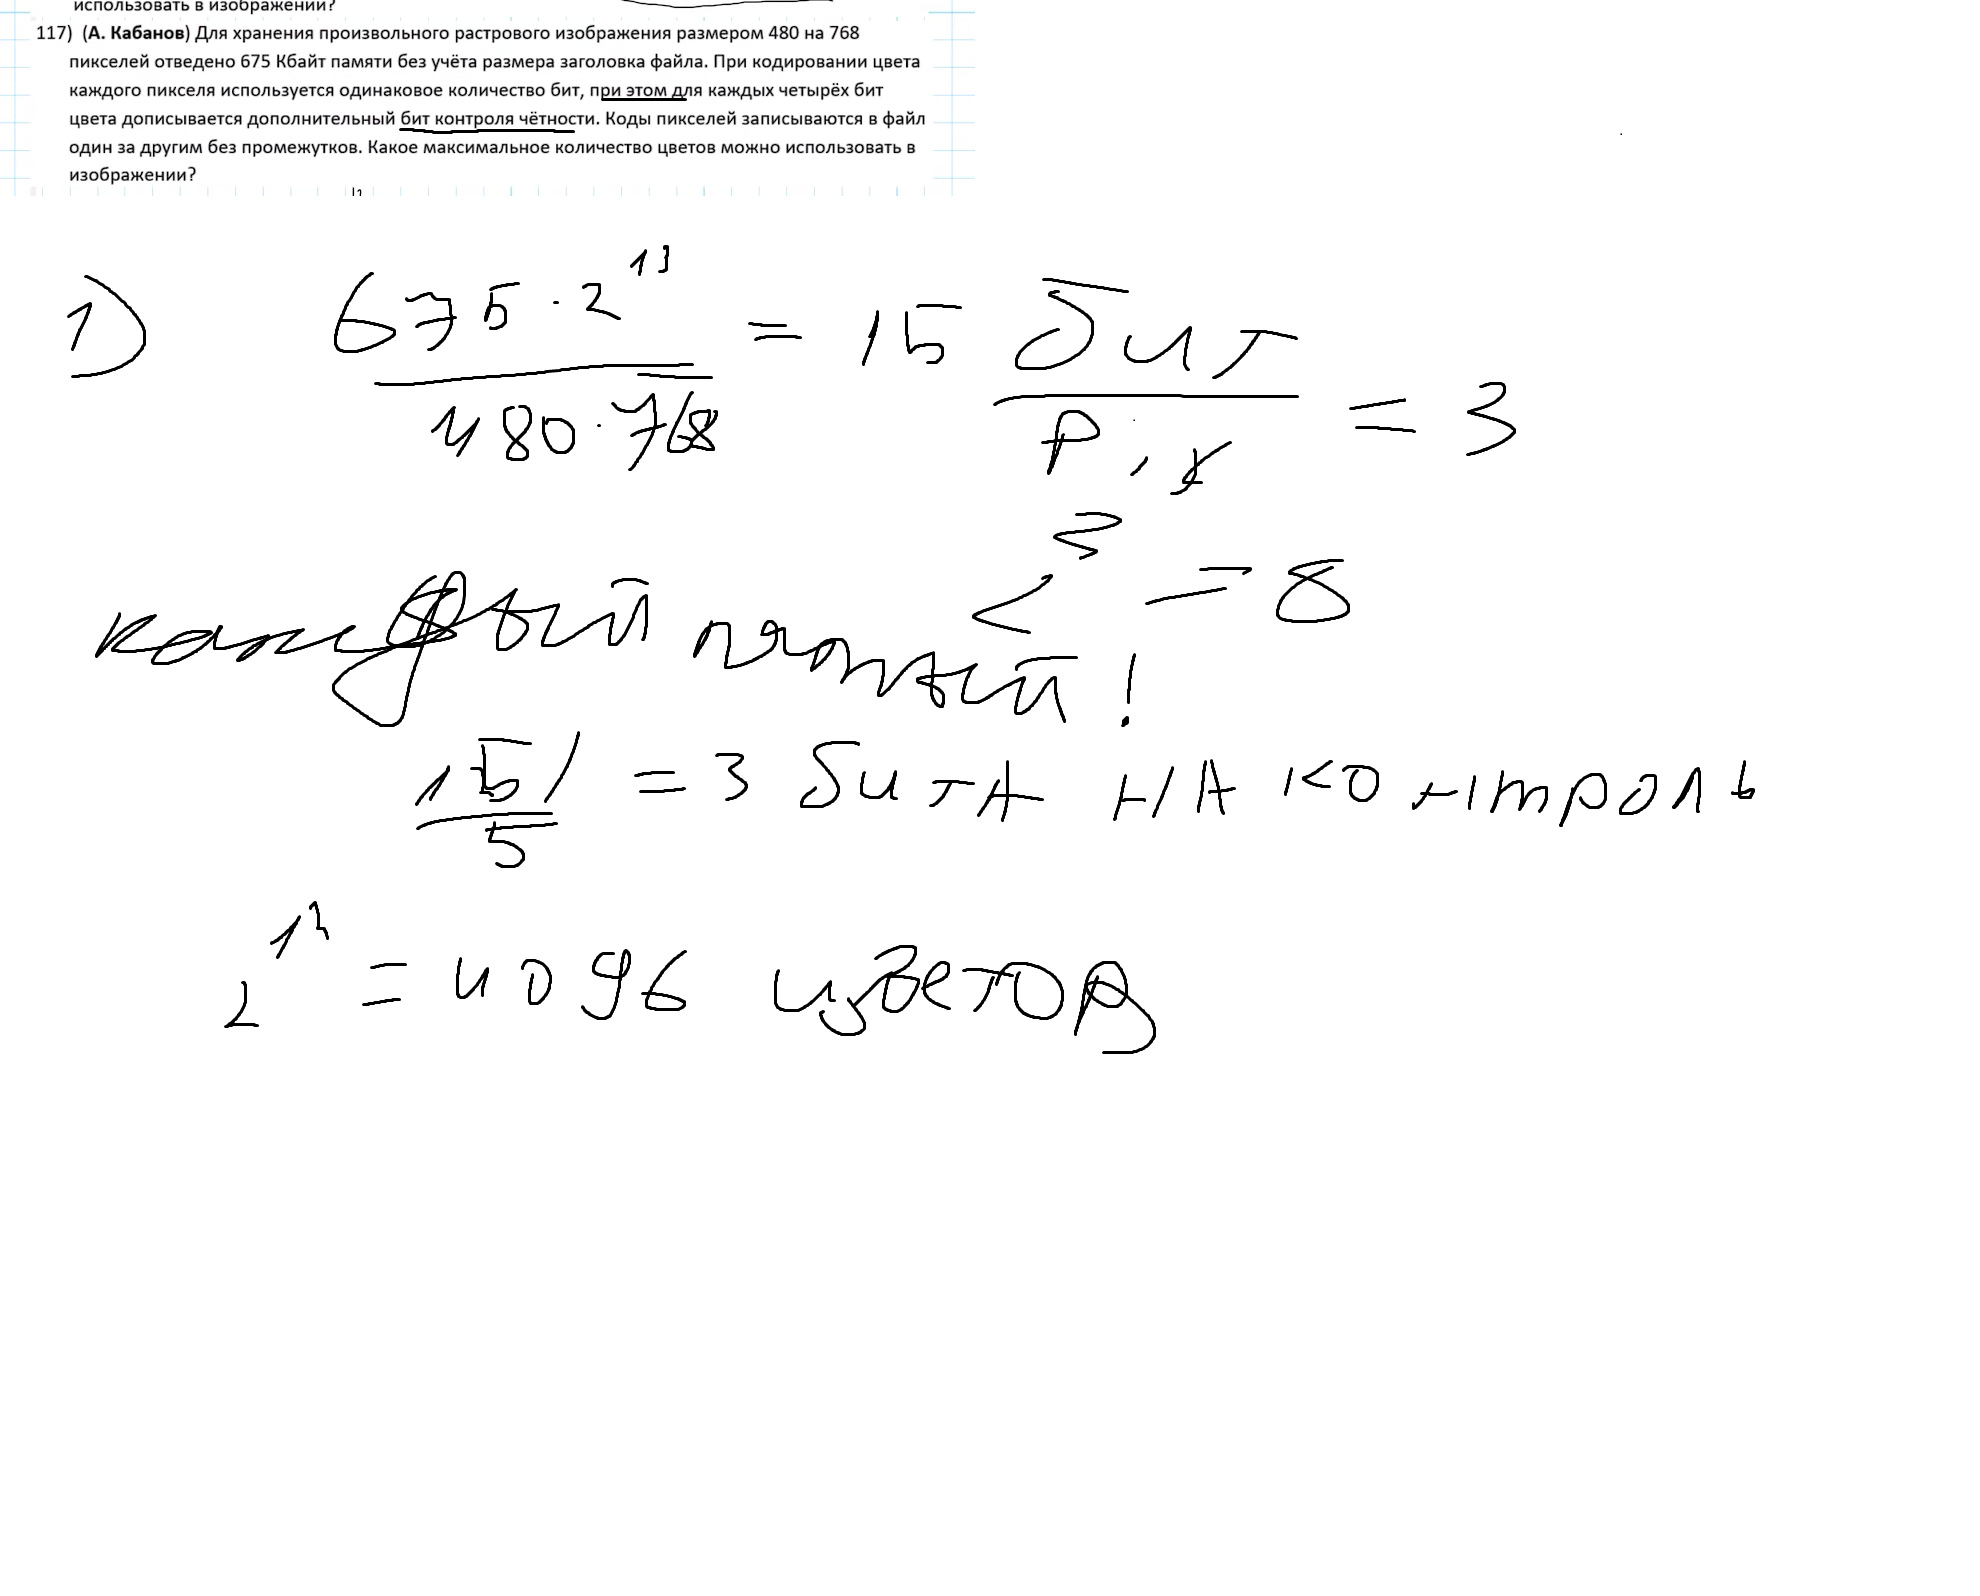 использовать в изображении?
117) (А. Кабанов) Для хранения произвольного растрового изображения размером 480 на 768
пикселей отведено 675 Кбайт памяти без учёта размера заголовка файла. При кодировании цвета
каждого пикселя используется одинаковое количество бит, при этом для каждых четырёх бит
цвета дописывается дополнительный бит контроля чётности. Коды пикселей записываются в файл
один за другим без промежутков. Какое максимальное количество цветов можно использовать в
изображении?
1) 675 · 2^13 / 480 · 768 = 15 бит / pix = 3
= 8
каждый пятый!
15 / 5 = 3 бита на контроль
2^12 = 4096 цветов